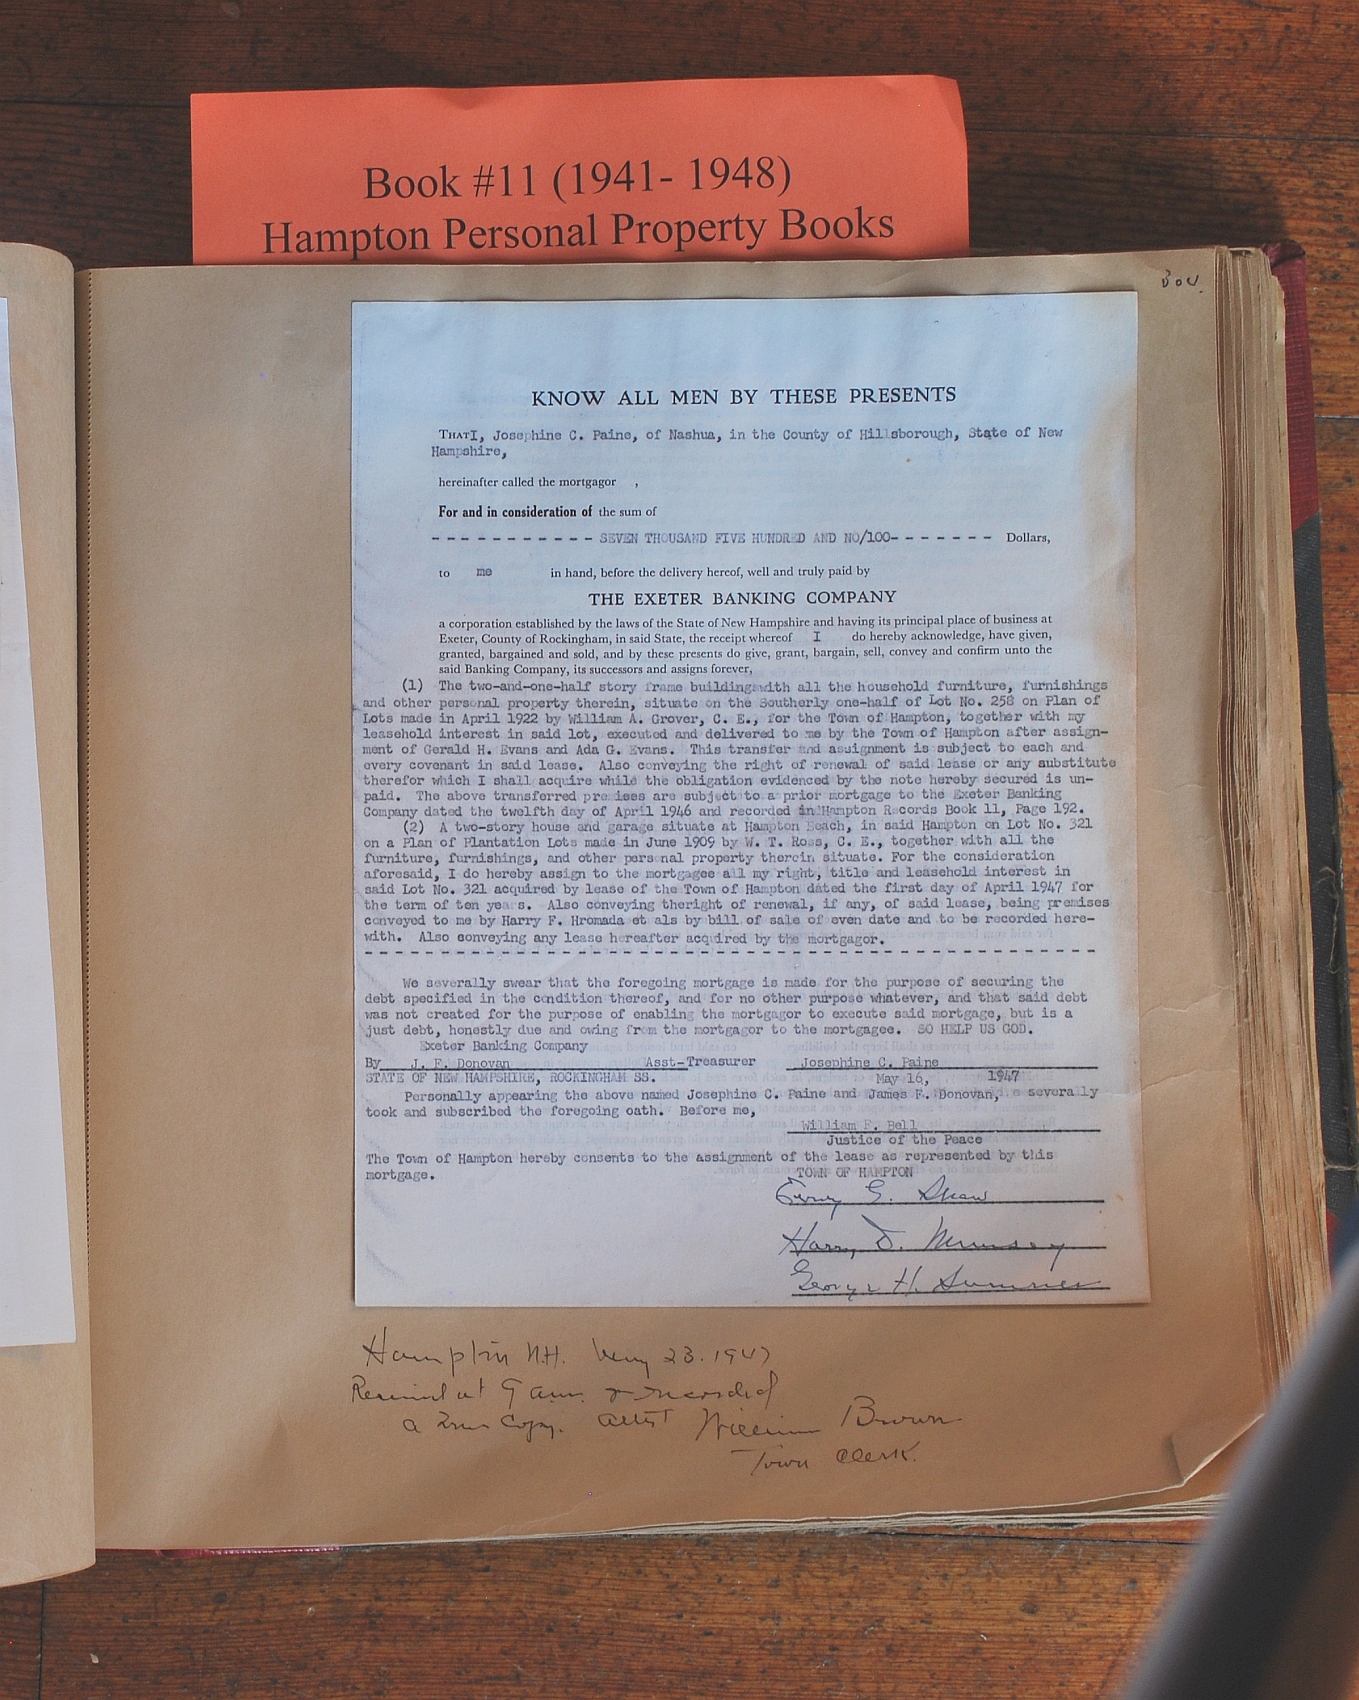 Book #11 (1941- 1948)
Hampton Personal Property Books
KNOW ALL MEN BY THESE PRESENTS
THAT I, Josephine C. Paine, of Nashua, in the County of Hillsborough, State of New
Hampshire,
hereinafter called the mortgagor ,
For and in consideration of the sum of
- - - - - - - - - - - SEVEN THOUSAND FIVE HUNDRED AND NO/100- - - - - - - Dollars,
to me in hand, before the delivery hereof, well and truly paid by
THE EXETER BANKING COMPANY
a corporation established by the laws of the State of New Hampshire and having its principal place of business at
Exeter, County of Rockingham, in said State, the receipt whereof I do hereby acknowledge, have given,
granted, bargained and sold, and by these presents do give, grant, bargain, sell, convey and confirm unto the
said Banking Company, its successors and assigns forever,
(1) The two-and-one-half story frame building with all the household furniture, furnishings
and other personal property therein, situate on the Southerly one-half of Lot No. 258 on Plan of
Lots made in April 1922 by William A. Grover, C. E., for the Town of Hampton, together with my
leasehold interest in said lot, executed and delivered to me by the Town of Hampton after assign-
ment of Gerald H. Evans and Ada G. Evans. This transfer and assignment is subject to each and
every covenant in said lease. Also conveying the right of renewal of said lease or any substitute
therefor which I shall acquire while the obligation evidenced by the note hereby secured is un-
paid. The above transferred premises are subject to a prior mortgage to the Exeter Banking
Company dated the twelfth day of April 1946 and recorded in Hampton Records Book 11, Page 192.
(2) A two-story house and garage situate at Hampton Beach, in said Hampton on Lot No. 321
on a Plan of Plantation Lots made in June 1909 by W. T. Ross, C. E., together with all the
furniture, furnishings, and other personal property therein situate. For the consideration
aforesaid, I do hereby assign to the mortgagee all my right, title and leasehold interest in
said Lot No. 321 acquired by lease of the Town of Hampton dated the first day of April 1947 for
the term of ten years. Also conveying theright of renewal, if any, of said lease, being premises
conveyed to me by Harry F. Hromada et als by bill of sale of even date and to be recorded here-
with. Also conveying any lease hereafter acquired by the mortgagor.
We severally swear that the foregoing mortgage is made for the purpose of securing the
debt specified in the condition thereof, and for no other purpose whatever, and that said debt
was not created for the purpose of enabling the mortgagor to execute said mortgage, but is a
just debt, honestly due and owing from the mortgagor to the mortgagee. SO HELP US GOD.
Exeter Banking Company
By J. F. Donovan Asst-Treasurer Josephine C. Paine
STATE OF NEW HAMPSHIRE, ROCKINGHAM SS. May 16, 1947
Personally appearing the above named Josephine C. Paine and James F. Donovan, severally
took and subscribed the foregoing oath. Before me,
William F. Bell
Justice of the Peace
The Town of Hampton hereby consents to the assignment of the lease as represented by this
mortgage. TOWN OF HAMPTON
G. Shaw
Harry D. Munsey
George H. Sumner
Hampton N.H. May 23. 1947
Received at 9 a.m. & recorded
a True Copy. Attest William Brown
Town Clerk.